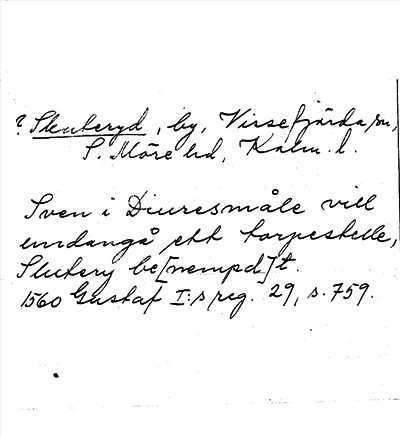 ? Skuteryd, by, Vissefjärda sn,
S. Möre hd, Kalm. l.
Sven i Diuresmåle vill
undangå ett torpestelle,
Skutery be[nempd]t.
1560 Gustaf I:s reg. 29, s. 759.